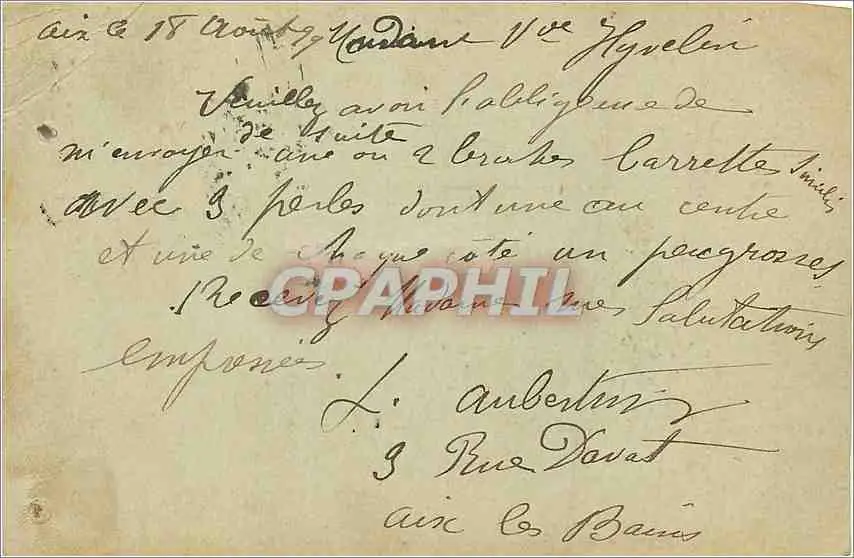 Aix le 18 Août 99 Madame Vve Hyvelin
Veuillez avoir l'obligeance de
de suite
m'envoyer une ou 2 broches barrettes Similis
avec 3 perles dont une au centre
et une de chaque côté un peu grosses.
Recevez Madame mes Salutations
empressées.
L. Aubertin
3 Rue Davat
Aix les Bains
CPAPHIL